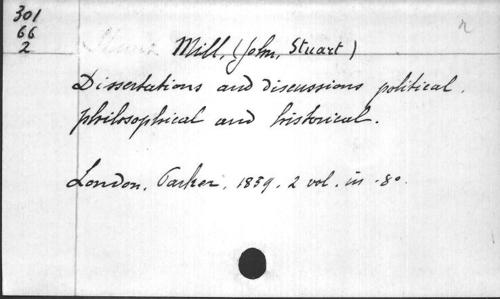 301
66
2
Mill, (John, Stuart)
Dissertations and discussions political.
philosophical and historical.
London. Parker. 1859. 2 vol. in -8o.